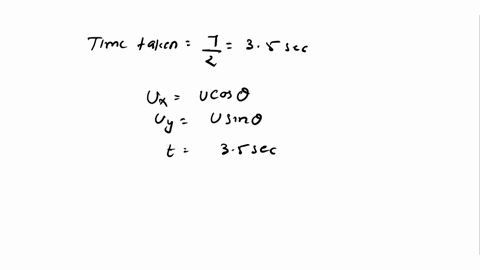 Time taken = 7/2 = 3.5 sec
Ux = U cos θ
Uy = U sin θ
t = 3.5 sec